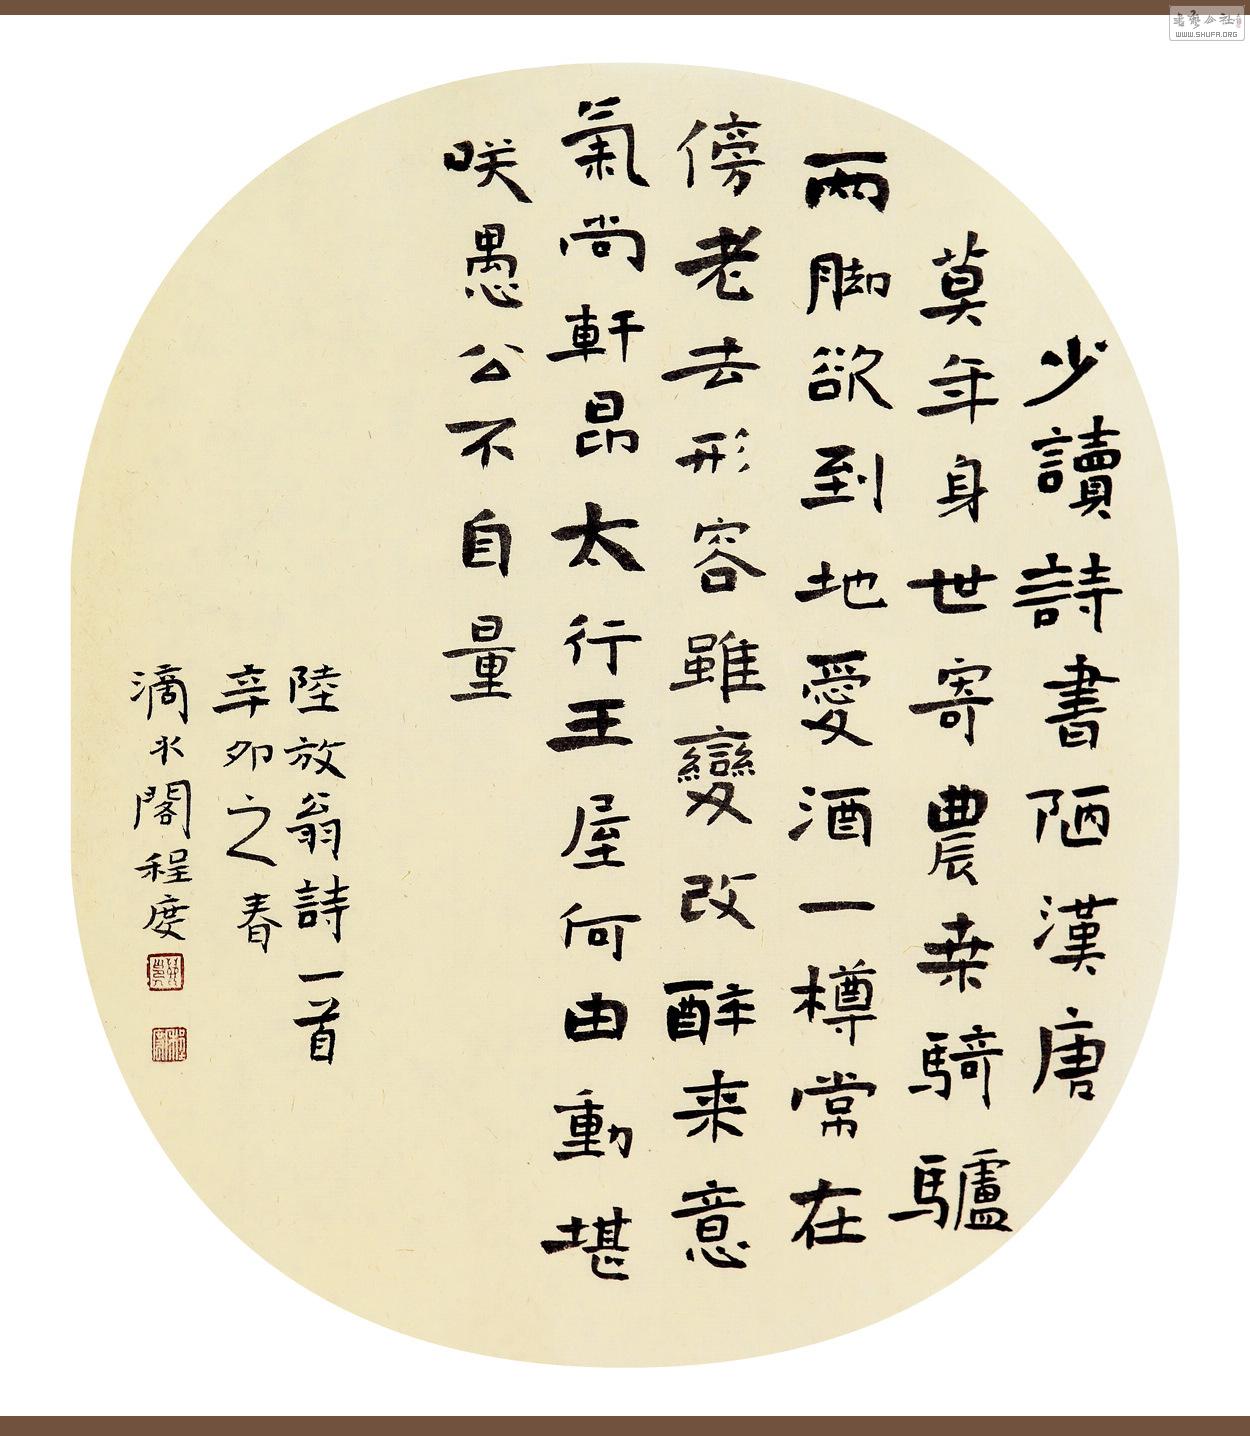 少讀詩書陋漢唐
莫年身世寄農桒騎驢
兩脚欲到地愛酒一樽常在
傍老去形容雖變改醉来意
氣尚軒昂太行王屋何由動堪
咲愚公不自量
陸放翁詩一首
辛卯之春
滴水閣程度
書藝公社
WWW.SHUFA.ORG